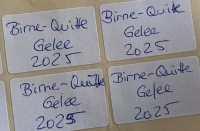 Birne-Quitte
Gelee
2025
Birne-Quitte
Gelee
2025
Birne-Quitte
Gelee
2025
Birne-Quitte
Gelee
2025